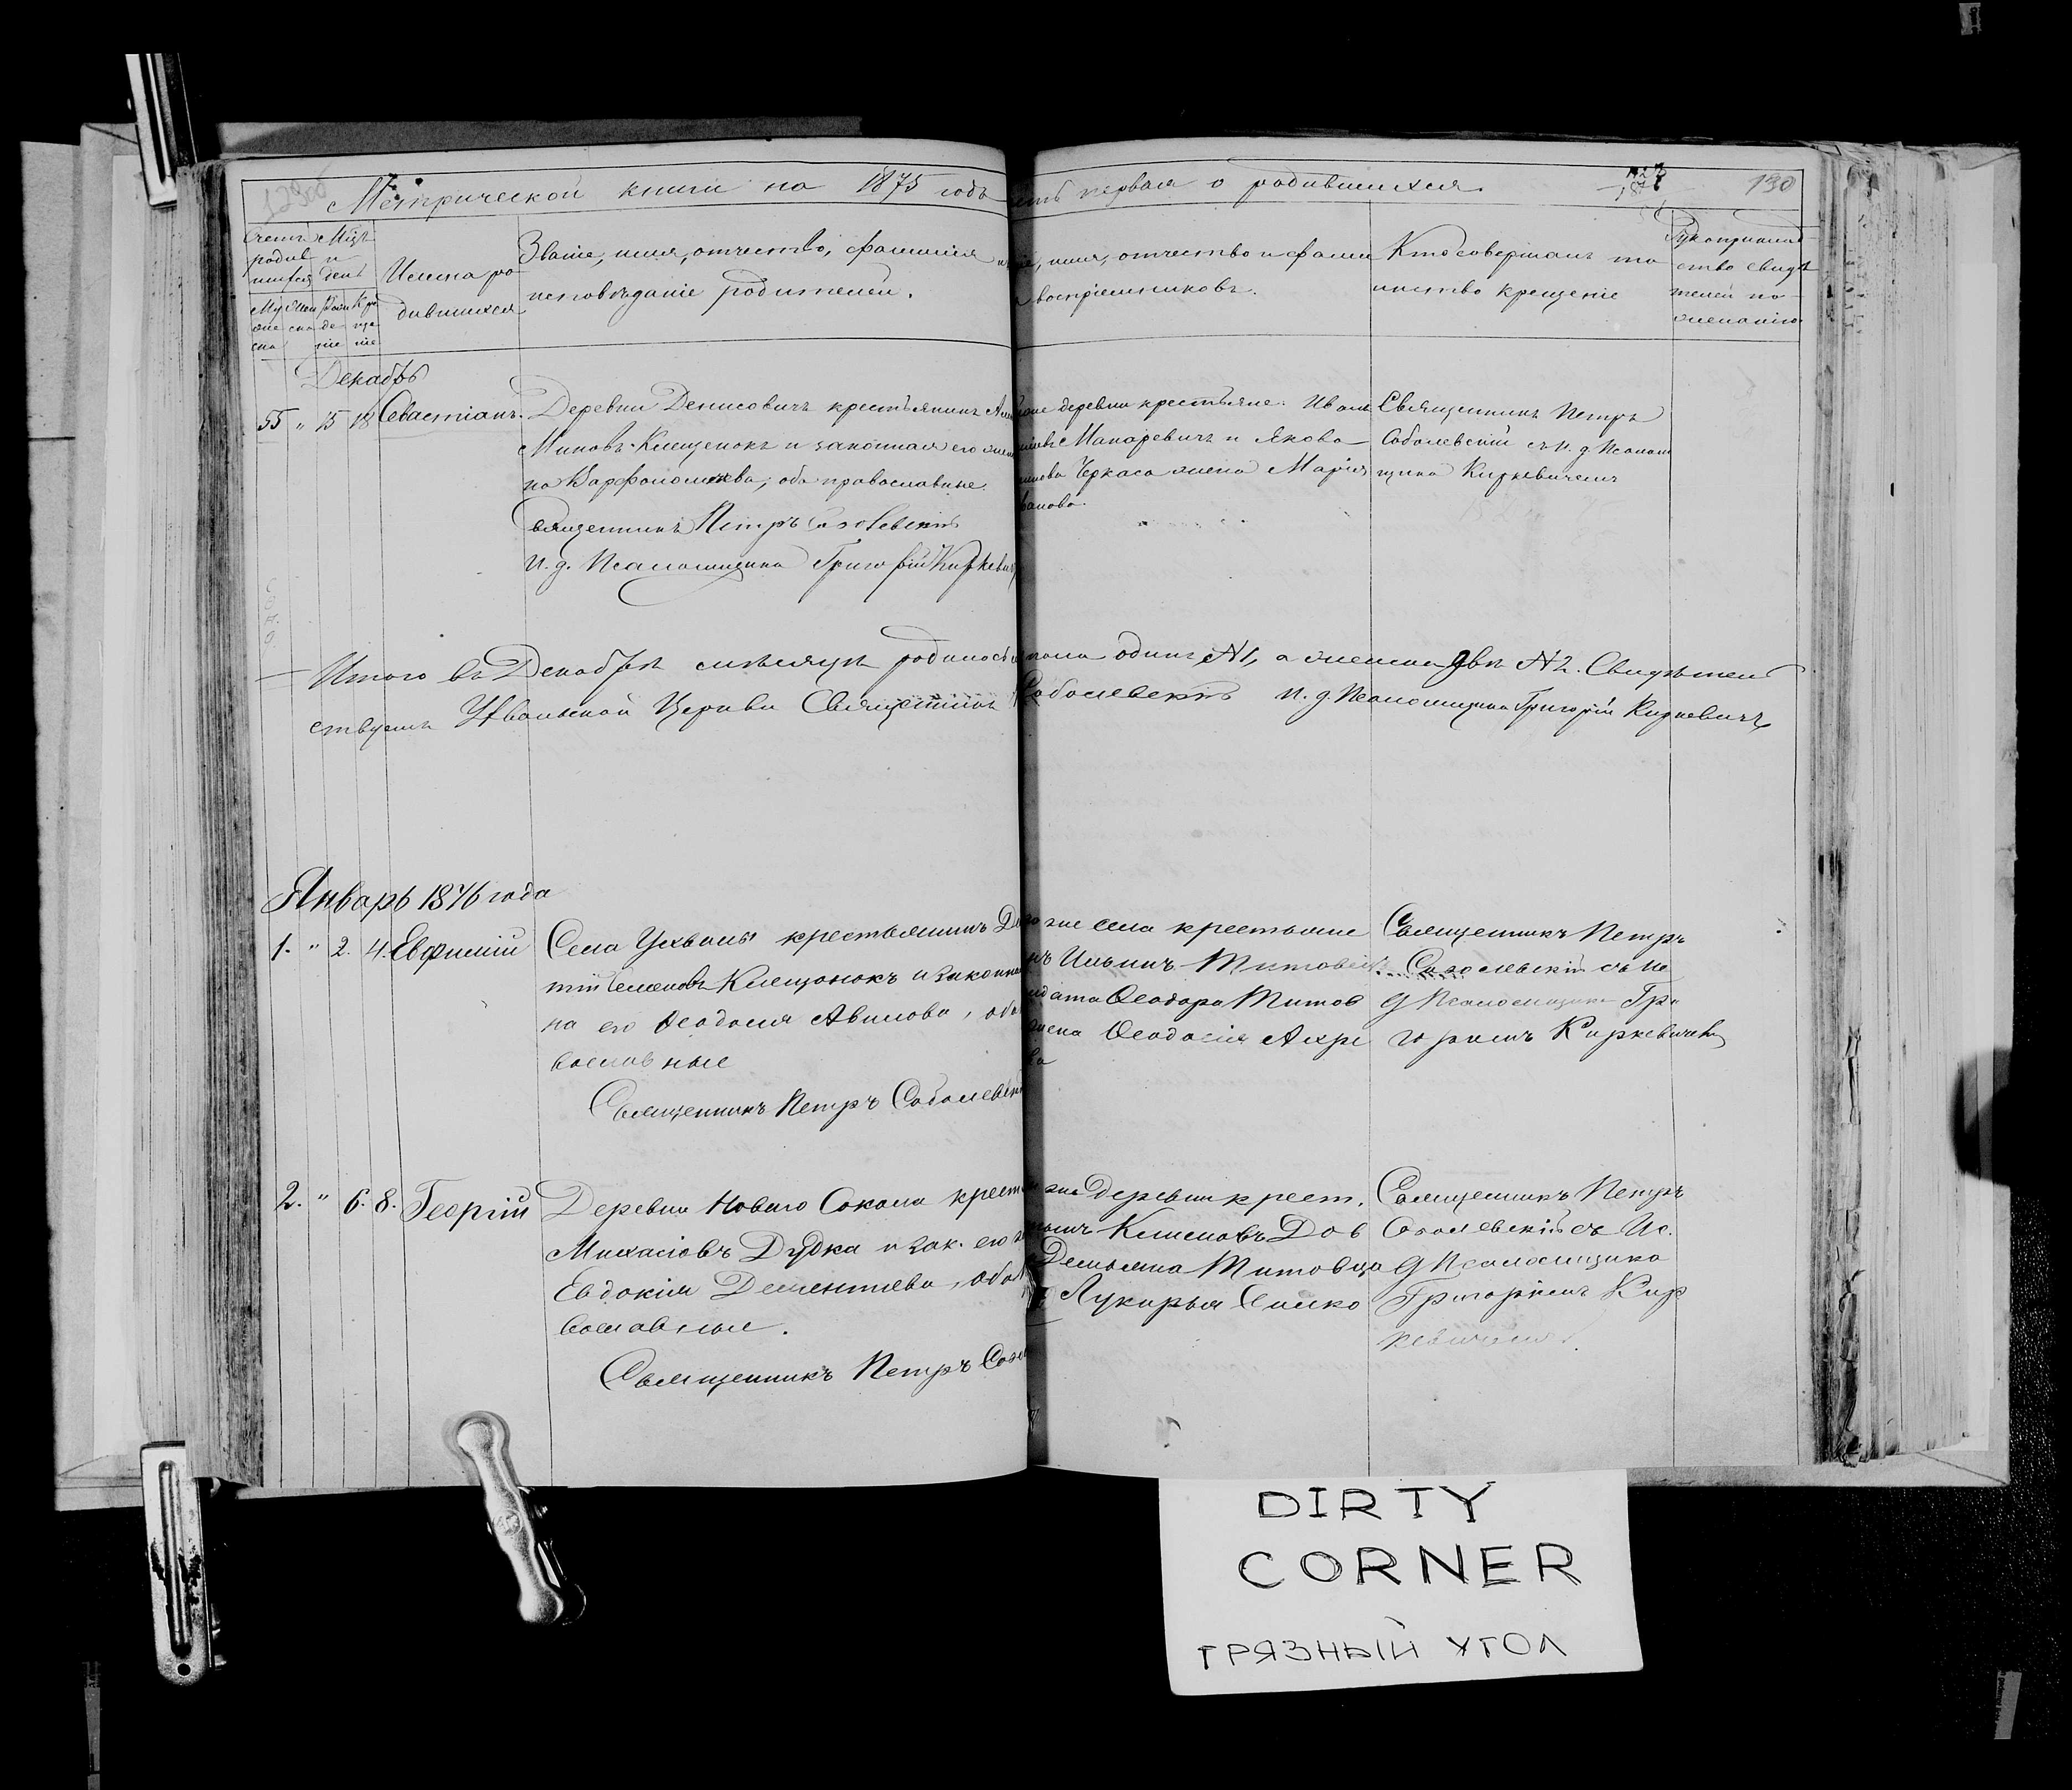 Метрической книги на 1875 годъ
часть первая о родившихся.
130
Счетъ
родив
шихся
Мѣсяцъ
и
день
Муже
ска
Жен
ска
Рож
де
ніе
Кре
ще
ніе
Имена ро
дившихся
Званіе, имя, отчество, фамилія и
исповѣданіе родителей.
имя, отчество и фами
воспріемниковъ.
Кто совершалъ та
инство крещеніе
Рукоприклад
ство свидѣ
телей по
желанію
Декабрь
55 " 15 18 Севастіанъ.
Деревни Денисовичъ крестьянинъ
Миновъ Клещенокъ и законная его жен
на Варфоломѣева, оба православные.
Священникъ Петръ Соболевскій
И. д. Псаломщика Григорій Киркевич
же деревни крестьяне: Иван
Макаревичъ и Якова
Черкаса жена Марія
Иванова.
Священникъ Петръ
Соболевскій съ и. д. Псалом
щика Киркевичемъ
Итого въ Декабрѣ мѣсяцѣ родилось
пола одинъ №1, а женска двѣ №2. Свидѣтель
ствуемъ Ухвальской Церкви Священникъ
Соболевскій И. д. Псаломщика Григорій Киркевичъ
Январь 1876 года
1. " 2. 4. Евфимій
Села Ухвалы крестьянинъ
тій Семеновъ Клещонокъ и законна
на его Ѳеодосія Авилова, оба
вославные
Священникъ Петръ Соболевскі
же села крестьяне
Ильинъ Титовец
Ѳеодора Титов
жена Ѳеодосія Андре
ва
Священникъ Петръ
Соболевскій съ Ис.
д Псаломщика Гри
горіемъ Киркевичемъ
2. " 6. 8. Георгій
Деревни Новаго Сокола крест
Михаіловъ Дудка и зак. его
Евдокія Дементіева, оба
вославные.
Священникъ Петръ Собол
же деревни крест.
Клименовъ Дов
Демьяна Титовца
Лукерья Симко
Священникъ Петръ
Соболевскій съ Ис.
д Псаломщика
Григоріемъ Кир
кевичемъ.
DIRTY
CORNER
ГРЯЗНЫЙ УГОЛ